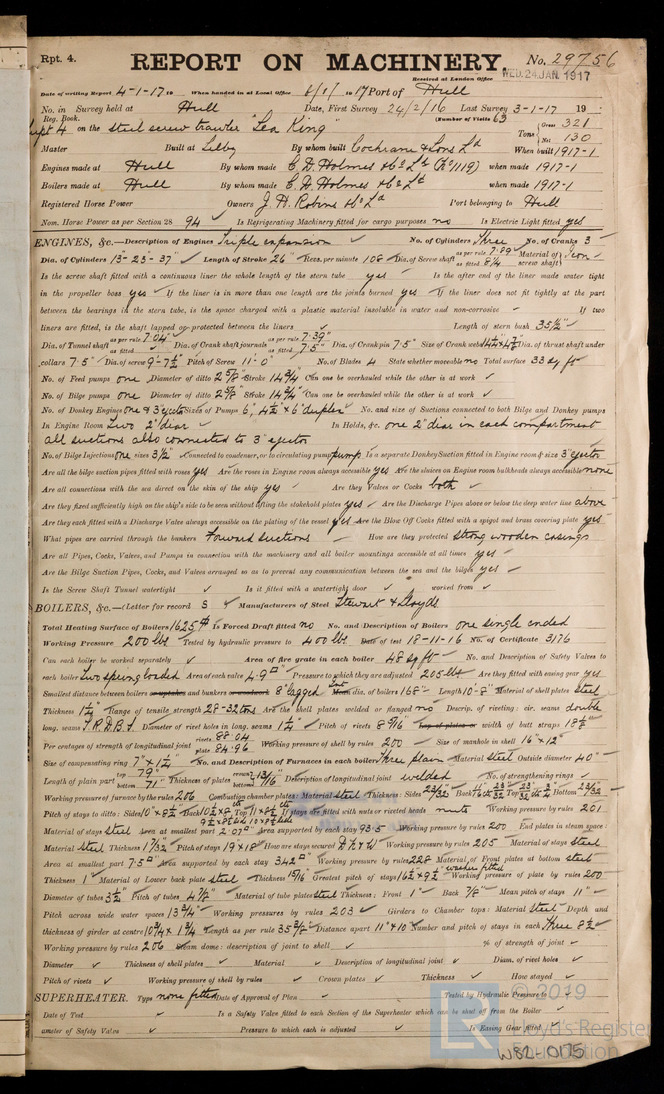 Rpt. 4.
REPORT ON MACHINERY. No. 29756
Received at London Office WED. 24 JAN. 1917
Date of writing Report 4-1-17 19 When handed in at Local Office 8/1/1917 Port of Hull
No. in Survey held at Hull Date, First Survey 24/2/16 Last Survey 3-1-17 19
Reg. Book. (Number of Visits 63
on the steel screw trawler "Sea King" Tons Gross 321 Net 130
Master Built at Selby By whom built Cochrane & Sons Ld When built 1917-1
Engines made at Hull By whom made C. D. Holmes & Co Ld (No 1119) when made 1917-1
Boilers made at Hull By whom made C. D. Holmes & Co Ld when made 1917-1
Registered Horse Power Owners J. H. Robins & Co Ld Port belonging to Hull
Nom. Horse Power as per Section 28 94 Is Refrigerating Machinery fitted for cargo purposes no Is Electric Light fitted yes
ENGINES, &c.—Description of Engines Triple expansion No. of Cylinders Three No. of Cranks 3
Dia. of Cylinders 13"-23-37" Length of Stroke 26" Revs. per minute 108 Dia. of Screw shaft as per rule 7.89" as fitted 8 1/4 Material of screw shaft Iron
Is the screw shaft fitted with a continuous liner the whole length of the stern tube yes Is the after end of the liner made water tight
in the propeller boss yes If the liner is in more than one length are the joints burned yes If the liner does not fit tightly at the part
between the bearings in the stern tube, is the space charged with a plastic material insoluble in water and non-corrosive If two
liners are fitted, is the shaft lapped or protected between the liners Length of stern bush 35 1/2"
Dia. of Tunnel shaft as per rule 7.04" as fitted Dia. of Crank shaft journals as per rule 7.39" as fitted 7.5" Dia. of Crank pin 7.5" Size of Crank webs 14 1/2 x 4 7/8 Dia. of thrust shaft under
collars 7.5" Dia. of screw 9'-7 1/2" Pitch of Screw 11'-0" No. of Blades 4 State whether moveable no Total surface 33 sq ft
No. of Feed pumps one Diameter of ditto 2 5/8" Stroke 14 3/4" Can one be overhauled while the other is at work
No. of Bilge pumps one Diameter of ditto 2 5/8" Stroke 14 3/4" Can one be overhauled while the other is at work
No. of Donkey Engines one & 3" ejector Sizes of Pumps 6", 4 1/2" x 6" duplex No. and size of Suctions connected to both Bilge and Donkey pumps
In Engine Room Two 2" diar In Holds, &c. one 2" diar in each compartment
all suctions also connected to 3" ejector
No. of Bilge Injections one sizes 3 1/2" Connected to condenser, or to circulating pump pump Is a separate Donkey Suction fitted in Engine room & size 3" ejector
Are all the bilge suction pipes fitted with roses yes Are the roses in Engine room always accessible yes Are the sluices on Engine room bulkheads always accessible none
Are all connections with the sea direct on the skin of the ship yes Are they Valves or Cocks both
Are they fixed sufficiently high on the ship's side to be seen without lifting the stokehold plates yes Are the Discharge Pipes above or below the deep water line above
Are they each fitted with a Discharge Valve always accessible on the plating of the vessel yes Are the Blow Off Cocks fitted with a spigot and brass covering plate yes
What pipes are carried through the bunkers Forward suctions How are they protected strong wooden casings
Are all Pipes, Cocks, Valves, and Pumps in connection with the machinery and all boiler mountings accessible at all times yes
Are the Bilge Suction Pipes, Cocks, and Valves arranged so as to prevent any communication between the sea and the bilges yes
Is the Screw Shaft Tunnel watertight Is it fitted with a watertight door worked from
BOILERS, &c.—(Letter for record S Manufacturers of Steel Stewart & Lloyds
Total Heating Surface of Boilers 1625 Is Forced Draft fitted no No. and Description of Boilers one single ended
Working Pressure 200 lbs Tested by hydraulic pressure to 400 lbs Date of test 18-11-16 No. of Certificate 3176
Can each boiler be worked separately Area of fire grate in each boiler 48 sq ft No. and Description of Safety Valves to
each boiler Two spring loaded Area of each valve 4.9 Pressure to which they are adjusted 205 lbs Are they fitted with easing gear yes
Smallest distance between boilers or uptakes and bunkers or woodwork 8" lagged dia. of boilers 168" Length 10'-8" Material of shell plates steel
Thickness 1 1/4" Range of tensile strength 28-32 tons Are the shell plates welded or flanged no Descrip. of riveting: cir. seams double
long. seams T.R.D.B.S. Diameter of rivet holes in long. seams 1 1/4" Pitch of rivets 8 9/16" Lap of plates or width of butt straps 18 1/2"
Per centages of strength of longitudinal joint rivets 88.04 plate 84.96 Working pressure of shell by rules 200 Size of manhole in shell 16" x 12"
Size of compensating ring 7" x 1 1/4" No. and Description of Furnaces in each boiler Three plain Material steel Outside diameter 40"
Length of plain part top 79" bottom 71" Thickness of plates crown bottom 13/16" Description of longitudinal joint welded No. of strengthening rings
Working pressure of furnace by the rules 206 Combustion chamber plates: Material steel Thickness: Sides 23/32" Back Top Bottom
Pitch of stays to ditto: Sides 10" x 8 1/2" Back Top If stays are fitted with nuts or riveted heads nuts Working pressure by rules 201
Material of stays steel Area at smallest part 2.07 Area supported by each stay 93.5 Working pressure by rules 200 End plates in steam space:
Material steel Thickness 1 7/32" Pitch of stays 19 x 18" How are stays secured D.N. & W Working pressure by rules 205 Material of stays steel
Area at smallest part 7.5 Area supported by each stay 342 Working pressure by rules 228 Material of Front plates at bottom steel
Thickness 1" Material of Lower back plate steel Thickness 15/16" Greatest pitch of stays 16 1/2 x 9 1/2 washer fitted Working pressure of plate by rules 200
Diameter of tubes 3 1/2" Pitch of tubes 4 7/8" Material of tube plates steel Thickness: Front 1" Back 7/8" Mean pitch of stays 11"
Pitch across wide water spaces 13 3/4" Working pressures by rules 203 Girders to Chamber tops: Material steel Depth and
thickness of girder at centre 10 3/4 x 1 3/4 Length as per rule 35 3/8" Distance apart 11" & 10 Number and pitch of stays in each Three 8 1/2"
Working pressure by rules 206 Steam dome: description of joint to shell % of strength of joint
Diameter Thickness of shell plates Material Description of longitudinal joint Diam. of rivet holes
Pitch of rivets Working pressure of shell by rules Crown plates Thickness How stayed
SUPERHEATER. Type none fitted Date of Approval of Plan Tested by Hydraulic Pressure to
Date of Test Is a Safety Valve fitted to each Section of the Superheater which can be shut off from the Boiler
ameter of Safety Valve Pressure to which each is adjusted Is Easing Gear fitted
© 2019
Lloyd's Register
Foundation
W82-0175